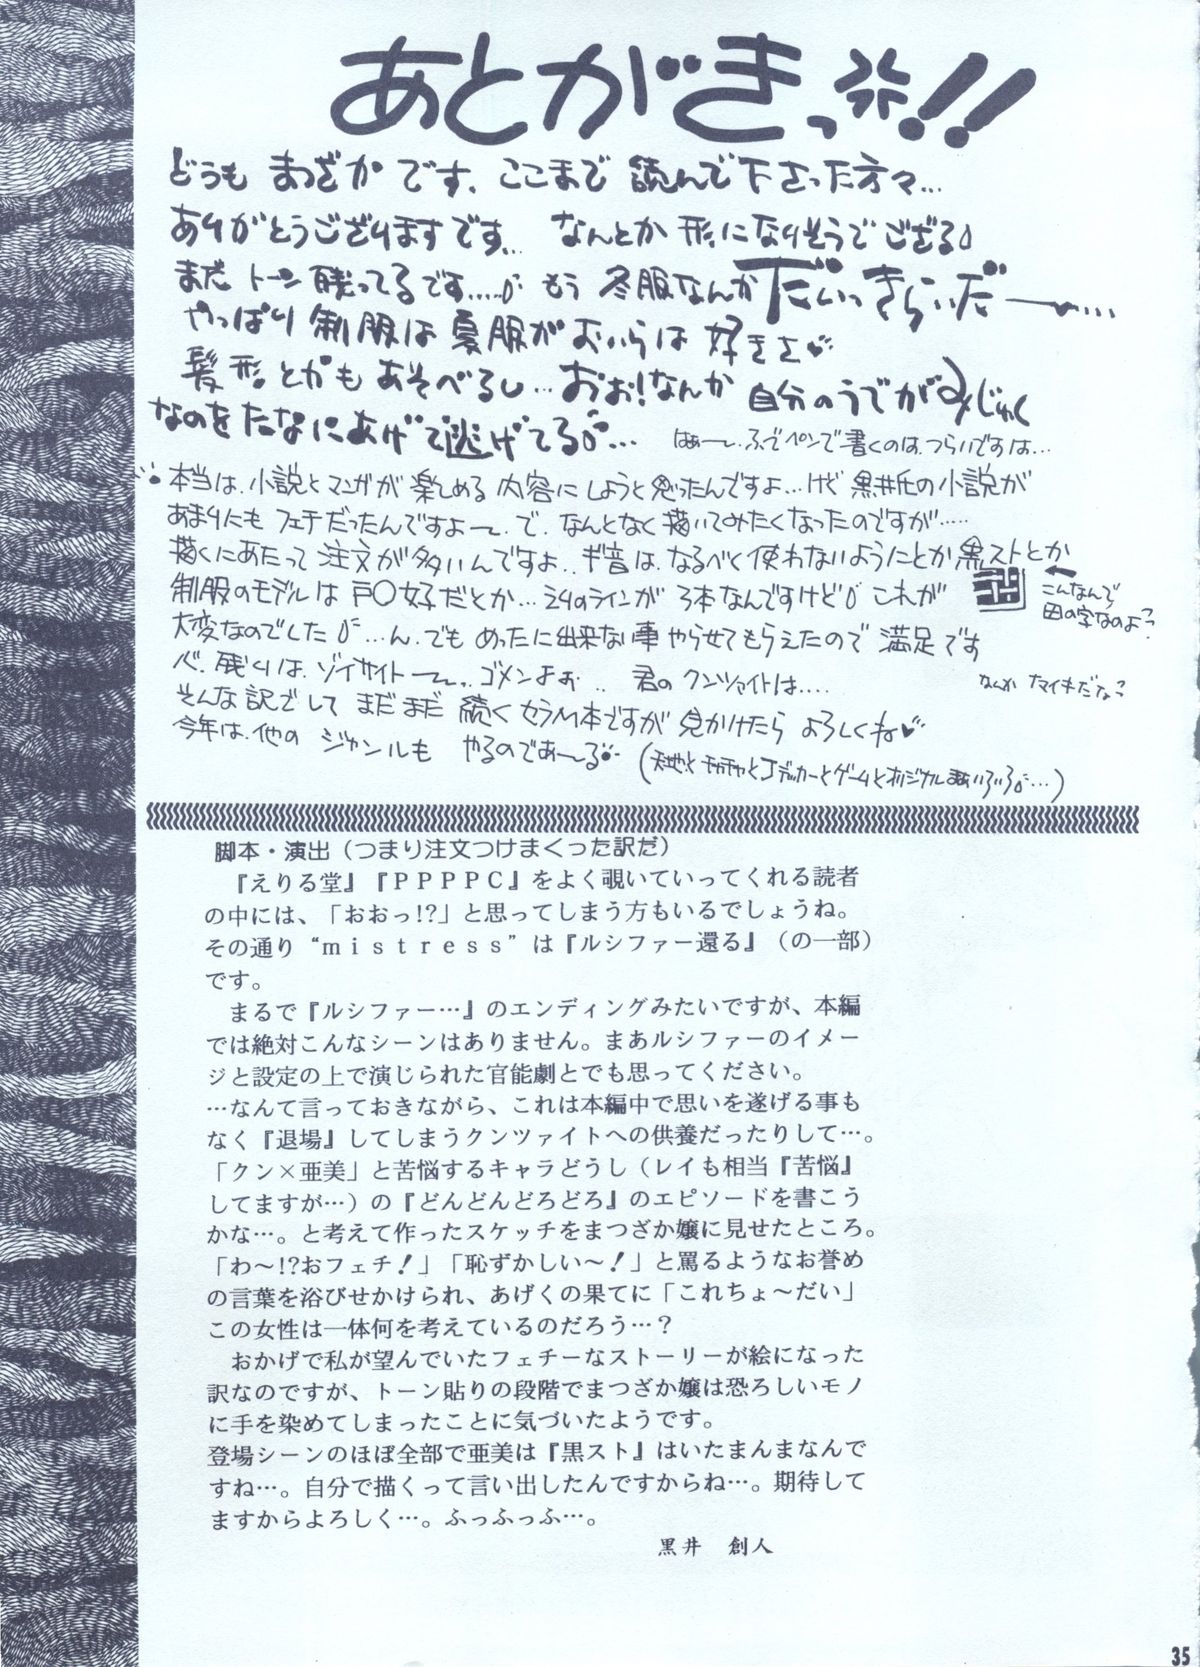 あとがきっ!!
どうも まつざか です. ここまで 読んで下さった方々…
ありがとうございますです… なんとか 形になりそうでござる
まだ トーン 残ってるです…… もう 冬服なんか だいっきらいだー……
やっぱり 制服は 夏服が おいらは 好きさ♥
髪形とかもあそべるし… おお!なんか 自分のうでがみじゅく
なのをたなにあげて逃げてる… はぁー. ふでペンで書くのは. つらいですは…
本当は. 小説とマンガが 楽しめる 内容にしようと思ったんですよ… けど 黒井氏の小説が
あまりにも フェチだったんですよー. で. なんとなく 描いてみたくなったのですが……
描くにあたって 注文が多いんですよ. ギ音は. なるべく使わないようにとか 黒ストとか
制服のモデルは 戸〇女子だとか… えりのラインが 3本なんですけど これが
こんなんで
田の字なのよ
大変なのでした …ん. でも めったに出来ない事 やらせてもらえたので 満足です
心. 残りは. ゾイサイトー…. ゴメンよぉ.. 君の クンツァイトは….
なんか ナマイキだな
そんな訳でして まだまだ 続く セラM本ですが 見かけたら よろしくね♥
今年は. 他の ジャンルも やるのであーる
(天地と チャチャと Jデッカーとゲームとオリジナル まぁいろいろ…)
脚本・演出（つまり注文つけまくった訳だ）
『えりる堂』『ＰＰＰＰＣ』をよく覗いていってくれる読者
の中には、「おおっ!?」と思ってしまう方もいるでしょうね。
その通り“ｍｉｓｔｒｅｓｓ”は『ルシファー還る』（の一部）
です。
まるで『ルシファー…』のエンディングみたいですが、本編
では絶対こんなシーンはありません。まあルシファーのイメー
ジと設定の上で演じられた官能劇とでも思ってください。
…なんて言っておきながら、これは本編中で思いを遂げる事も
なく『退場』してしまうクンツァイトへの供養だったりして…。
「クン×亜美」と苦悩するキャラどうし（レイも相当『苦悩』
してますが…）の『どんどんどろどろ』のエピソードを書こう
かな…。と考えて作ったスケッチをまつざか嬢に見せたところ。
「わ～!?おフェチ！」「恥ずかしい～！」と罵るようなお誉め
の言葉を浴びせかけられ、あげくの果てに「これちょ～だい」
この女性は一体何を考えているのだろう…？
おかげで私が望んでいたフェチーなストーリーが絵になった
訳なのですが、トーン貼りの段階でまつざか嬢は恐ろしいモノ
に手を染めてしまったことに気づいたようです。
登場シーンのほぼ全部で亜美は『黒スト』はいたまんまなんで
すね…。自分で描くって言い出したんですからね…。期待して
ますからよろしく…。ふっふっふ…。
黒井　創人
35